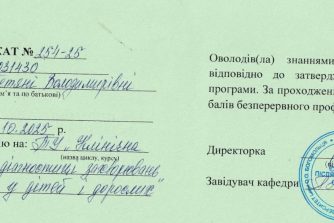 КАТ № 254-25
031430
етяні Володимирівні
м'я та по батькові)
.10.2025 р.
ю на: ПУ „Клінічна
(назва циклу, курсу)
діагностиці захворювань
у дітей і дорослих"
Оволодів(ла) знаннями
відповідно до затверд
програми. За проходженн
балів безперервного проф
Директорка
Завідувач кафедри